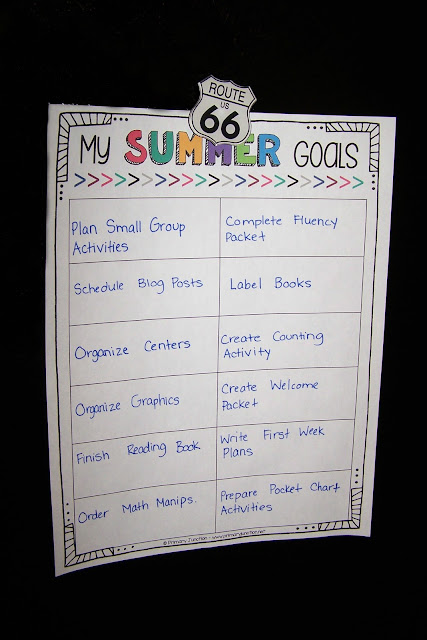 ROUTE
US
66
My SUMMER GOALS
Plan Small Group
Activities
Complete Fluency
Packet
Schedule Blog Posts
Label Books
Organize Centers
Create Counting
Activity
Organize Graphics
Create Welcome
Packet
Finish Reading Book
Write First Week
Plans
Order Math Manips.
Prepare Pocket Chart
Activities
© Primary Junction - www.primaryjunction.net